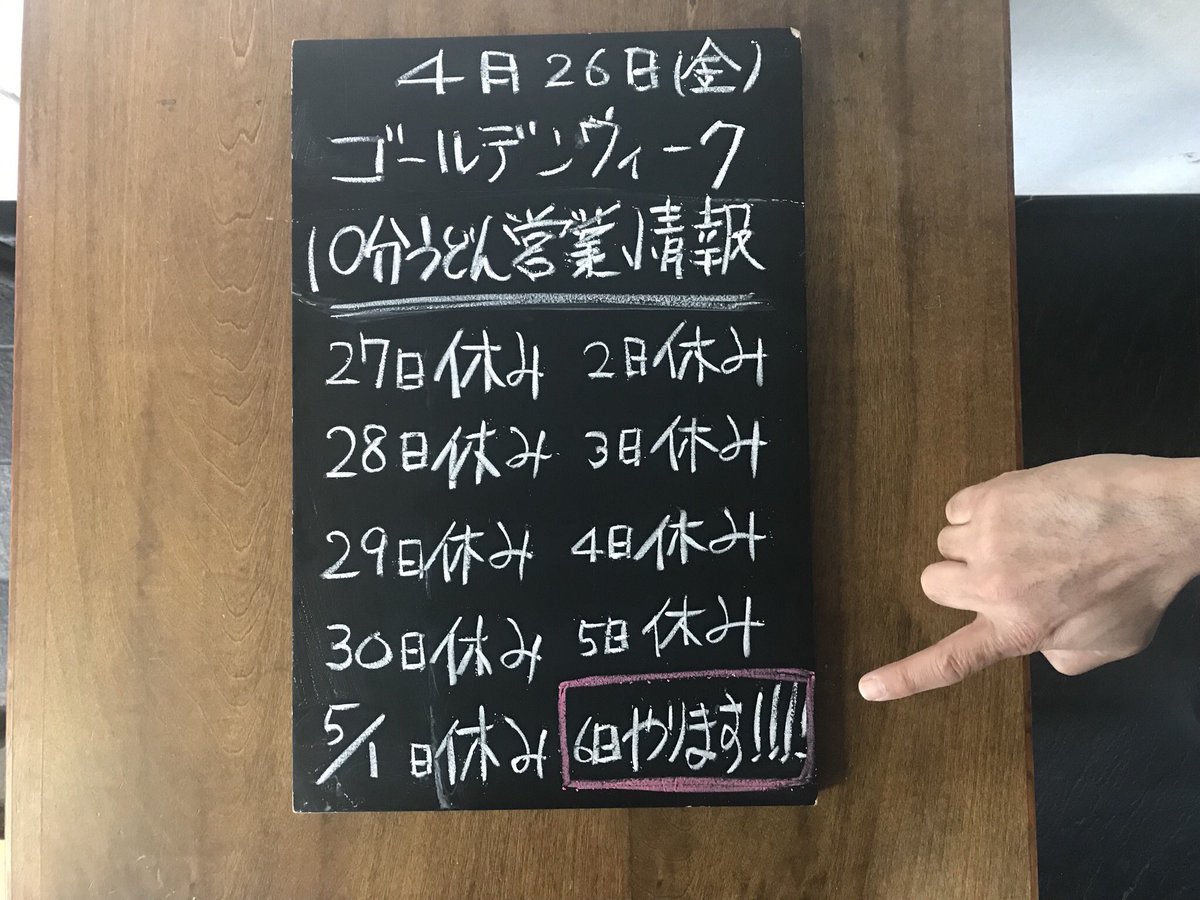 4月26日(金)
ゴールデンウィーク
10分うどん営業情報
27日休み
28日休み
29日休み
30日休み
5/1日休み
2日休み
3日休み
4日休み
5日休み
6日やります!!!!